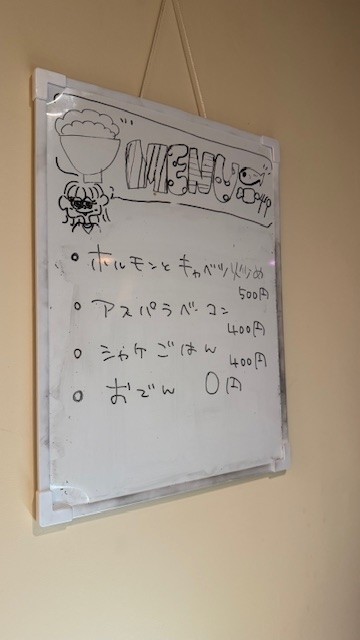 MENU
• ホルモンとキャベツ炒め
500円
• アスパラベーコン
400円
• シャケごはん
400円
• おでん 0円